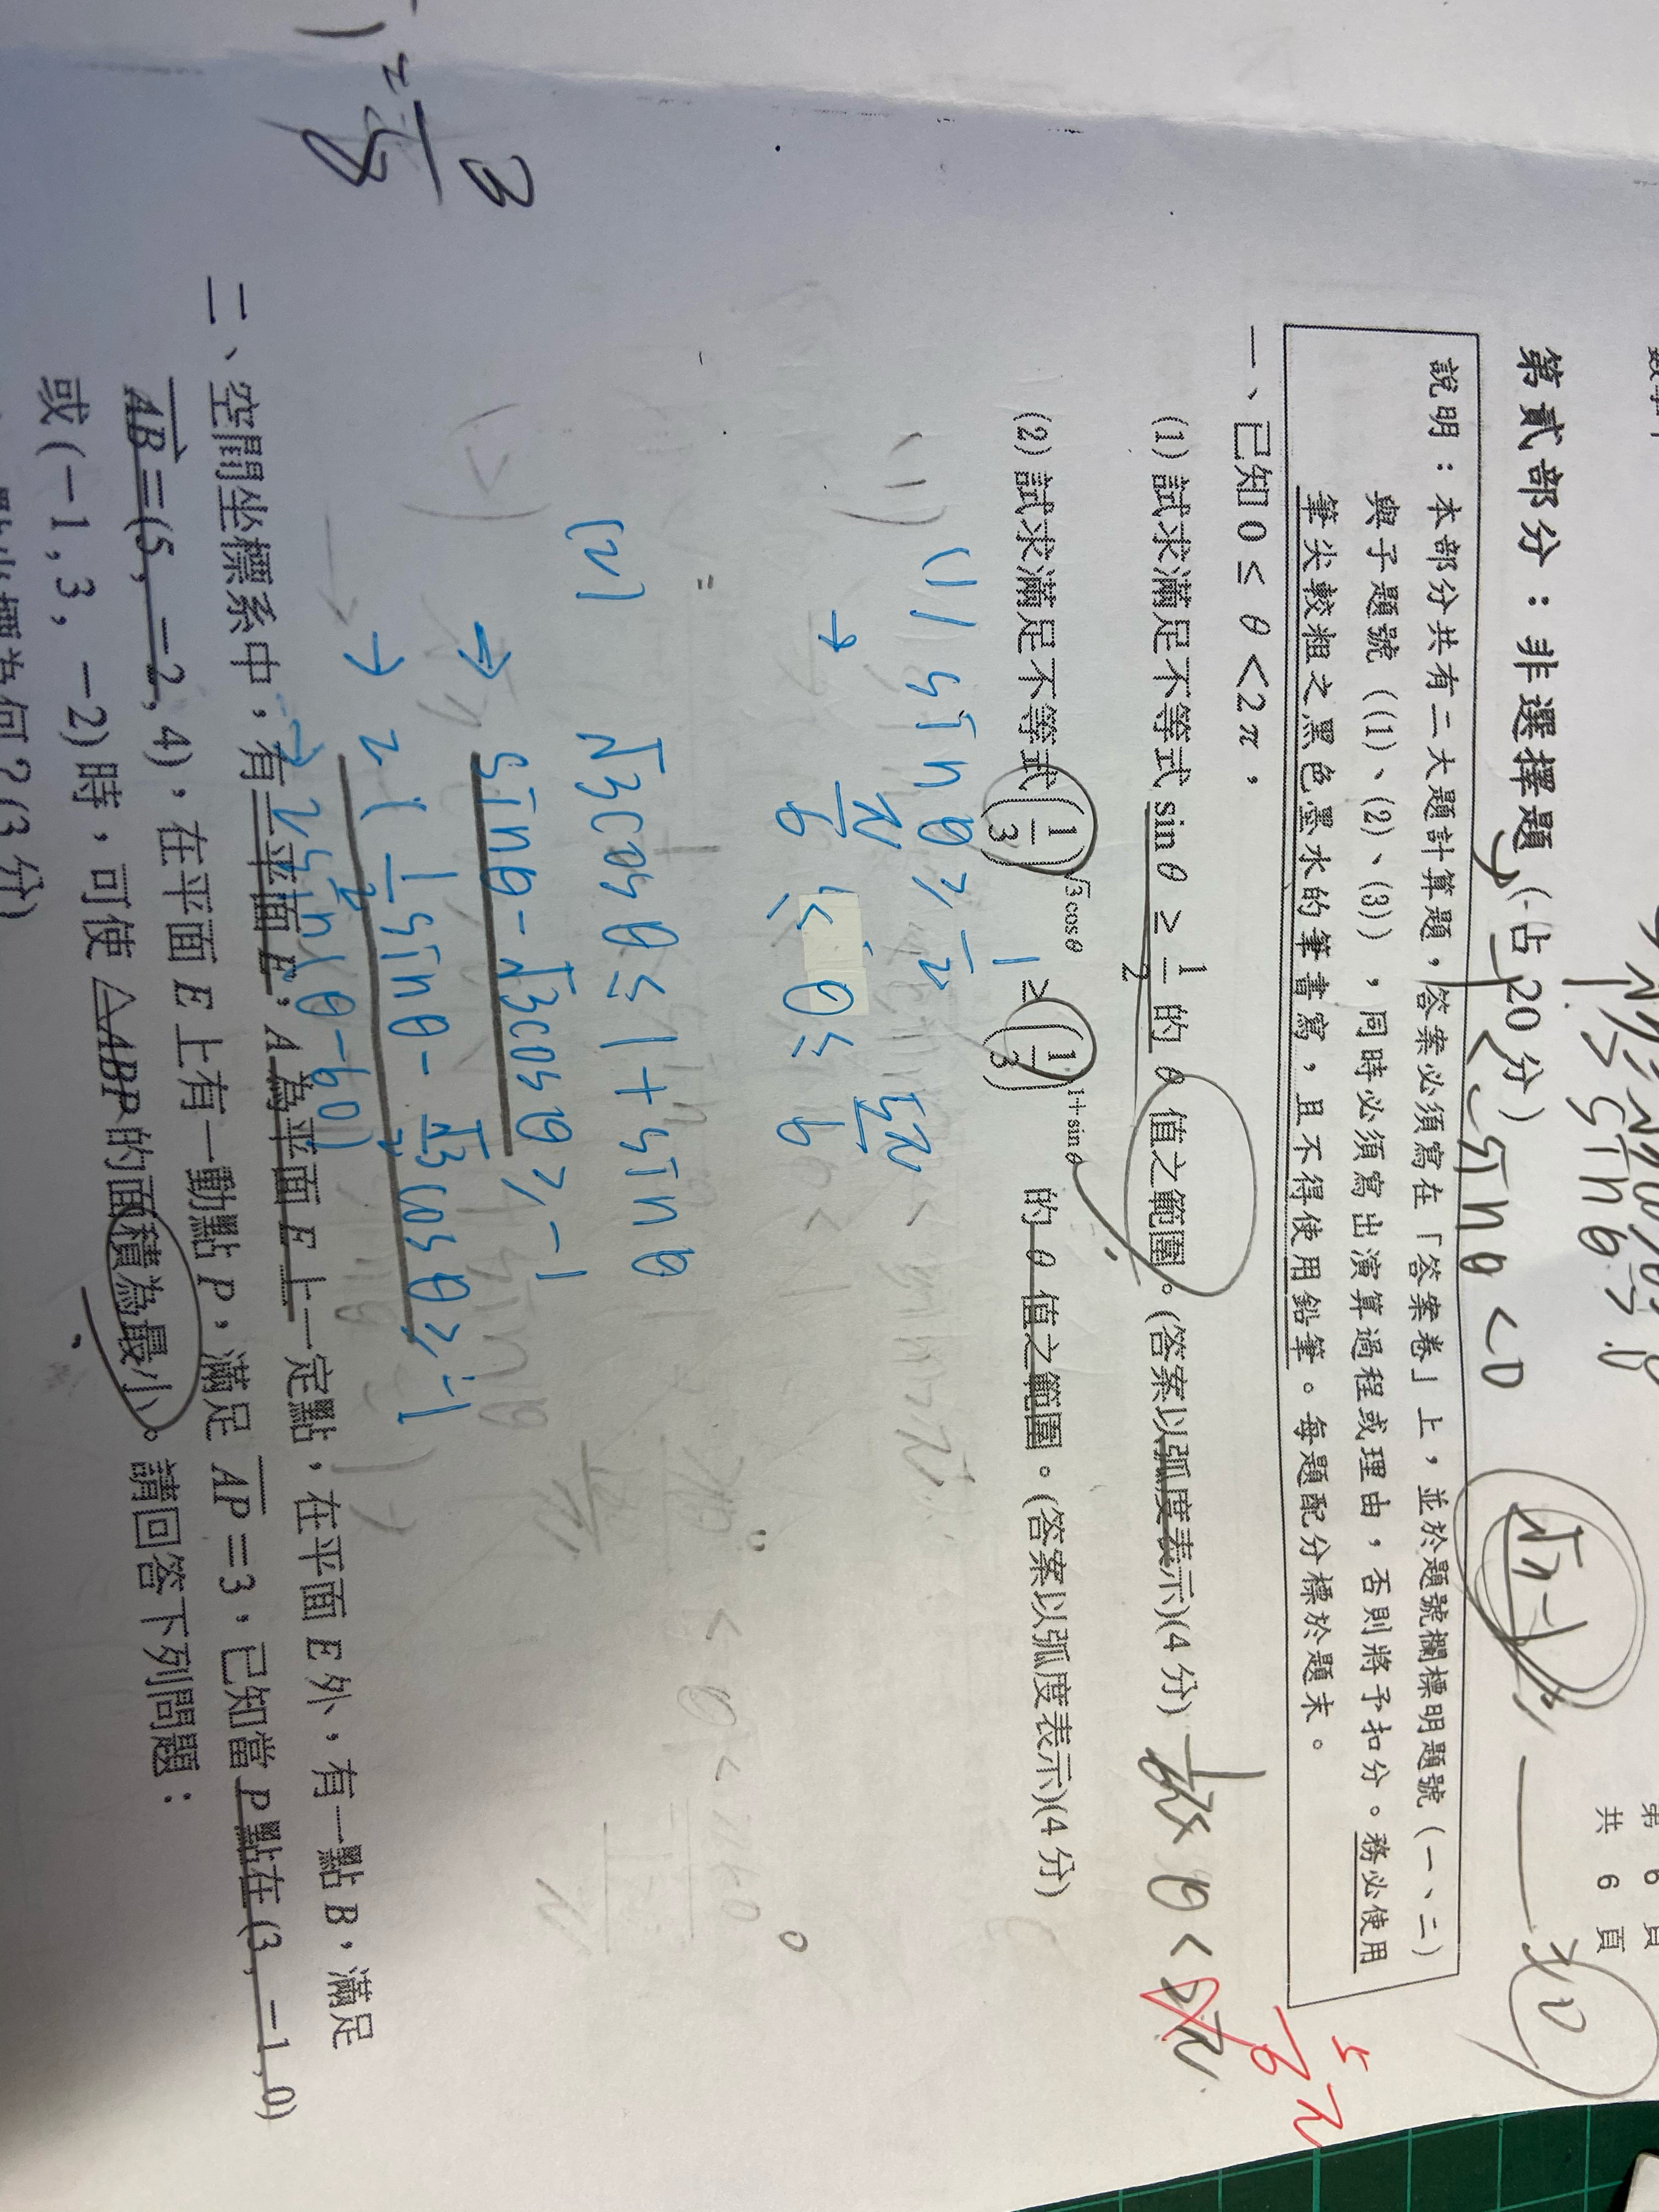 第貳部分：非選擇題(占 20 分)
sinθ < 0
共 6 頁
說明：本部分共有二大題計算題，答案必須寫在「答案卷」上，並於題號欄標明題號（一、二）
與子題號（(1)、(2)、(3)），同時必須寫出演算過程或理由，否則將予扣分。務必使用
筆尖較粗之黑色墨水的筆書寫，且不得使用鉛筆。每題配分標於題末。
一、已知 0 ≤ θ < 2π，
(1) 試求滿足不等式 sin θ ≥ 1/2 的 θ 值之範圍。(答案以弧度表示)(4 分)
5/6 π
(2) 試求滿足不等式 (1/3)^(√3cosθ) ≥ (1/3)^(1+sinθ) 的 θ 值之範圍。(答案以弧度表示)(4 分)
(1) sinθ ≥ 1/2
→ π/6 ≤ θ ≤ 5π/6
(2) √3cosθ ≤ 1 + sinθ
⇒ sinθ - √3cosθ ≥ -1
→ 2(1/2 sinθ - √3/2 cosθ) ≥ -1
→ 2sin(θ-60)
二、空間坐標系中，有一平面 E，A 為平面 E 上一定點，在平面 E 外，有一點 B，滿足
AB = (5, -2, 4)，在平面 E 上有一動點 P，滿足 AP = 3，已知當 P 點在 (3, -1, 0)
或 (-1, 3, -2) 時，可使 △ABP 的面積為最小。請回答下列問題：